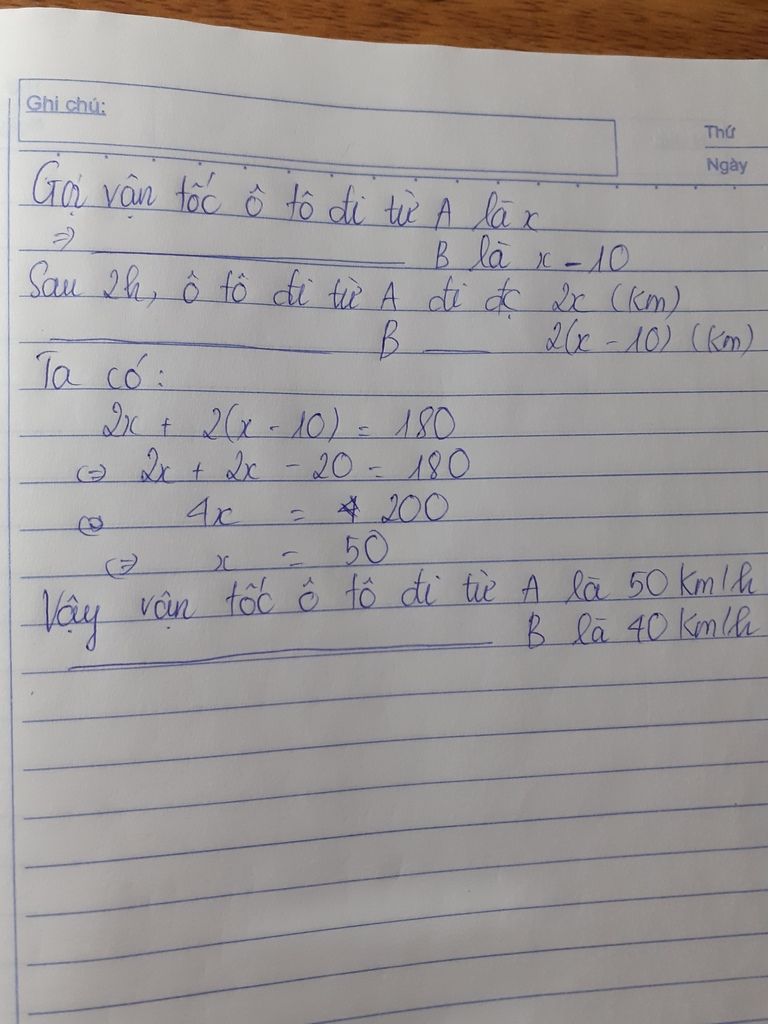 Ghi chú:
Thứ
Ngày
Gọi vận tốc ô tô đi từ A là x
=> ______ B là x - 10
Sau 2h, ô tô đi từ A đi đc 2x (km)
______ B ___ 2(x - 10) (km)
Ta có:
2x + 2(x - 10) = 180
<=> 2x + 2x - 20 = 180
<=> 4x = 200
<=> x = 50
Vậy vận tốc ô tô đi từ A là 50 km/h
______ B là 40 km/h